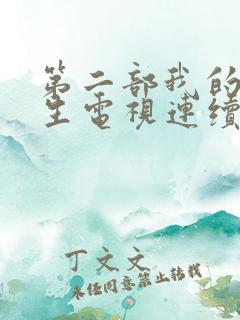 第二部我的
生電視連續
丁文文
未经同意禁止转载